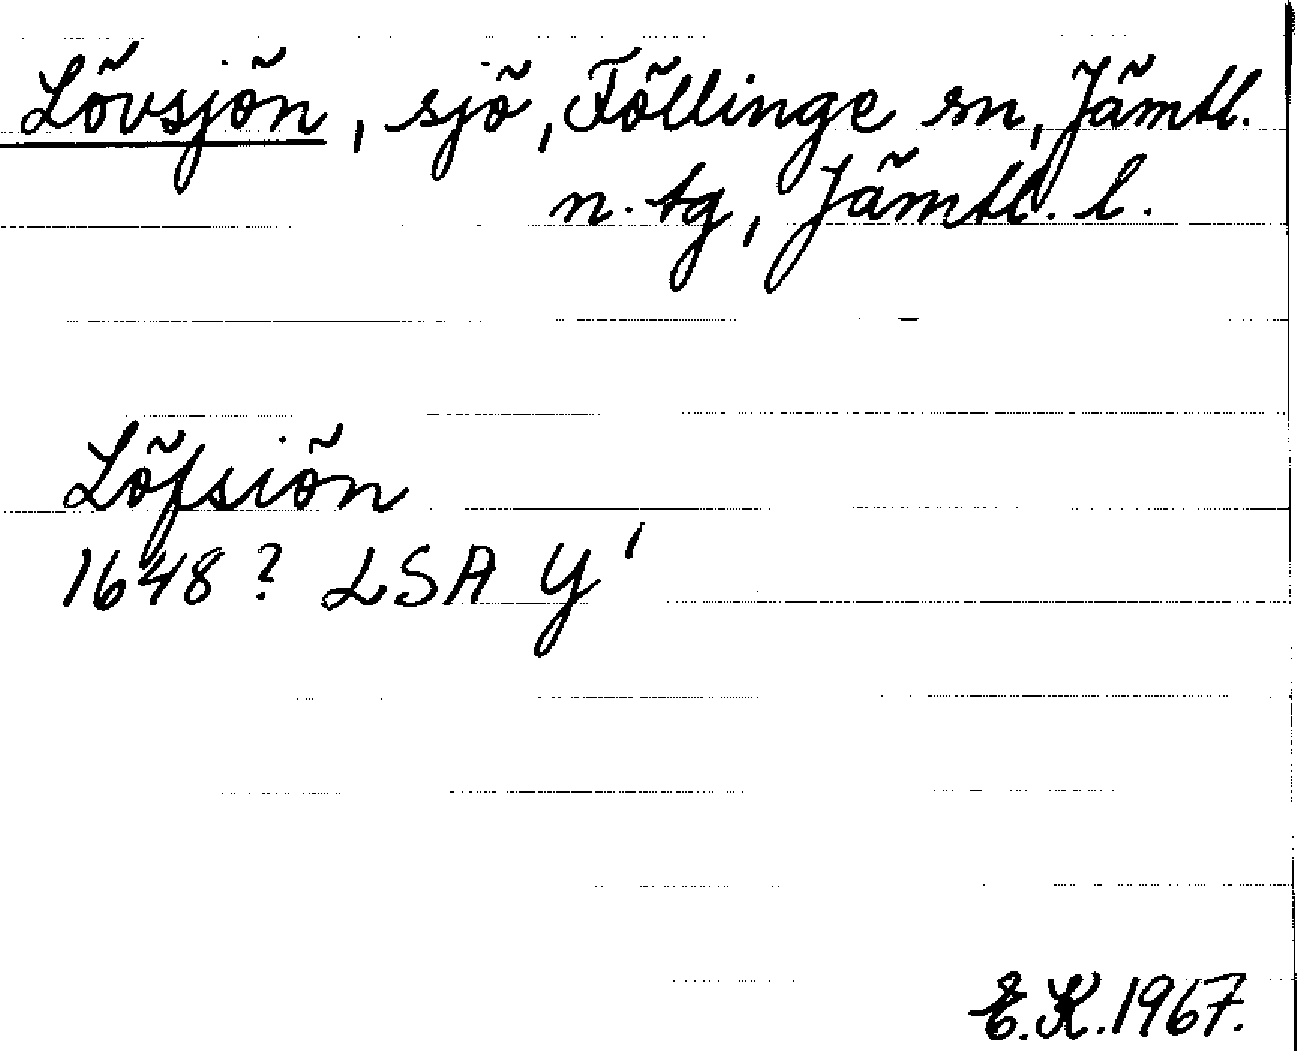 Lövsjön, sjö, Föllinge sn, Jämtl.
n. tg, Jämtl. l.
Löfsiön
1648? LSA Y'
E.K. 1967.